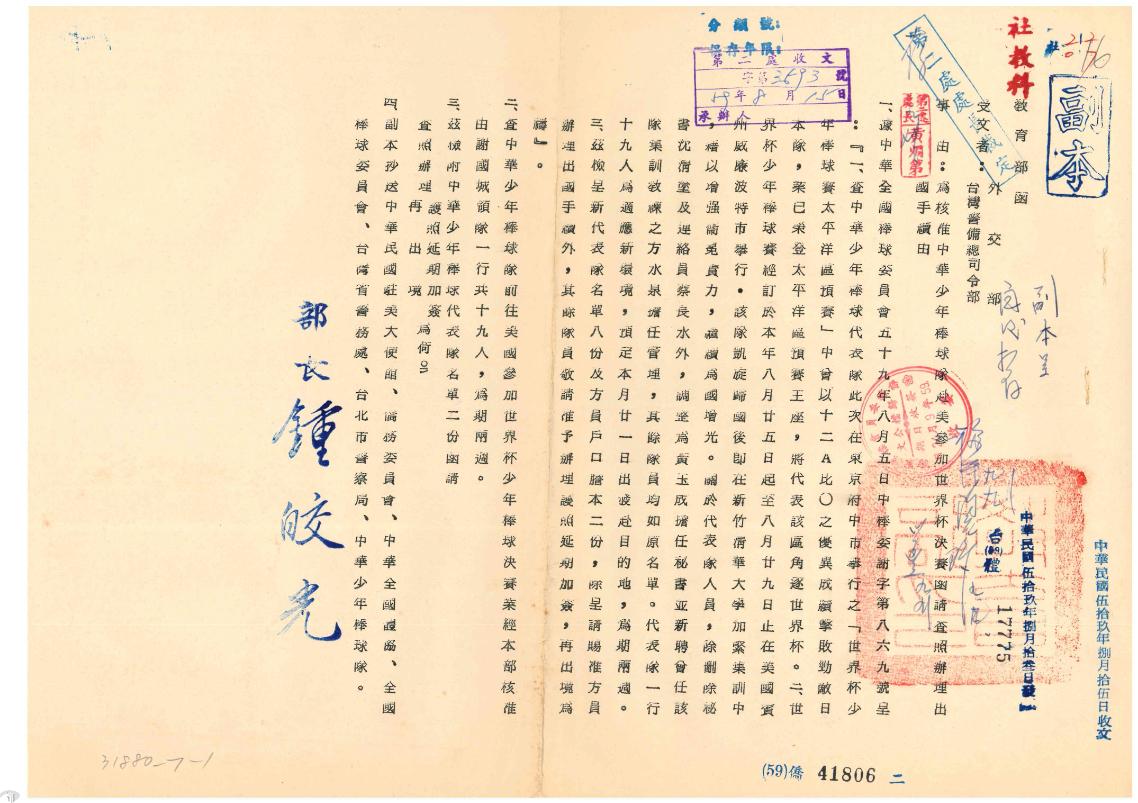 社教科
副本
教育部函
受文者：外交部
台灣警備總司令部
事由：為核准中華少年棒球隊赴美參加世界杯決賽函請查照辦理出
國手續由
一、據中華全國棒球委員會五十九年八月五日中棒委謝字第八六九號呈
：『一、查中華少年棒球代表隊此次在東京府中市舉行之「世界杯少
年棒球賽太平洋區預賽」中曾以十二A比〇之優異成績擊敗勁敵日
本隊，業已榮登太平洋區預賽王座，將代表該區角逐世界杯。二、世
界杯少年棒球賽經訂於本年八月廿五日起至八月廿九日止在美國賓
州威廉波特市舉行。該隊凱旋歸國後即在新竹清華大學加緊集訓中
，藉以增强衛冕實力，繼續為國增光。關於代表隊人員，除刪除秘
書沈清塗及連絡員蔡長水外，調整為黃玉成擔任秘書並新聘曾任該
隊集訓教練之方水泉擔任管理，其餘隊員均如原名單。代表隊一行
十九人為適應新環境，預定本月廿一日出發赴目的地，為期兩週。
三、茲檢呈新代表隊名單八份及方員戶口謄本二份，除呈請賜准方員
辦理出國手續外，其餘隊員敬請准予辦理護照延期加簽，再出境為
禱』。
二、查中華少年棒球隊前往美國參加世界杯少年棒球決賽業經本部核准
由謝國城領隊一行共十九人，為期兩週。
三、茲檢附中華少年棒球代表隊名單二份函請
查照辦理護照延期加簽再出境為荷。
四、副本抄送中華民國駐美大使館、僑務委員會、中華全國體協、全國
棒球委員會、台灣省警務處、台北市警察局、中華少年棒球隊。
部長鍾皎光
分類號：
保存年限：
第二處收文
字第3693號
59年8月15日
承辦人
第二處處長裁定
副本呈
中華民國伍拾玖年捌月拾叁日發
台(59)體17775
中華民國伍拾玖年捌月拾伍日收文
(59)僑 41806 二
31880-7-1